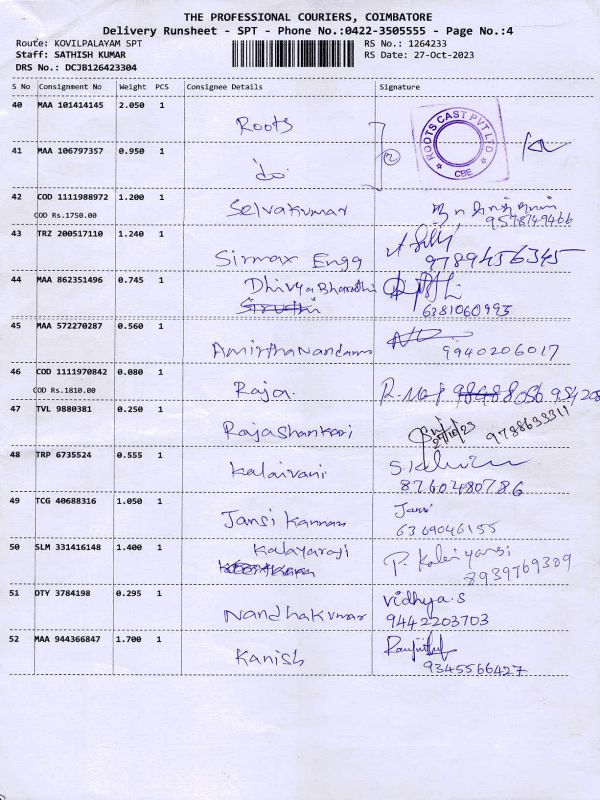 THE PROFESSIONAL COURIERS, COIMBATORE
Delivery Runsheet - SPT - Phone No.:0422-3505555 - Page No.:4
Route: KOVILPALAYAM SPT
Staff: SATHISH KUMAR
DRS No.: DCJB126423304
RS No.: 1264233
RS Date: 27-Oct-2023
S No Consignment No Weight PCS Consignee Details Signature
40 MAA 101414145 2.050 1 Roots
ROOTS CAST PVT LTD
CBE
41 MAA 106797357 0.950 1 do
2
42 COD 1111988972 1.200 1 Selvakumar
COD Rs.1750.00
9578749466
43 TRZ 200517110 1.240 1 Sirmax Engg
9789456345
44 MAA 862351496 0.745 1 DhivyaBharathi
6381060993
45 MAA 572270287 0.560 1 Amirthanandam
9940206017
46 COD 1111970842 0.080 1 Raja
COD Rs.1810.00
47 TVL 9880381 0.250 1 Rajashankari
9788633311
48 TRP 6735524 0.555 1 Kalaivani
8760480786
49 TCG 40688316 1.050 1 Jansi Kannan Jansi
6369046155
50 SLM 331416148 1.400 1 Kalayarasi
8939769309
51 OTY 3784198 0.295 1 Nandhakumar Vidhya.S
9442203703
52 MAA 944366847 1.700 1 Kanish
9345566427